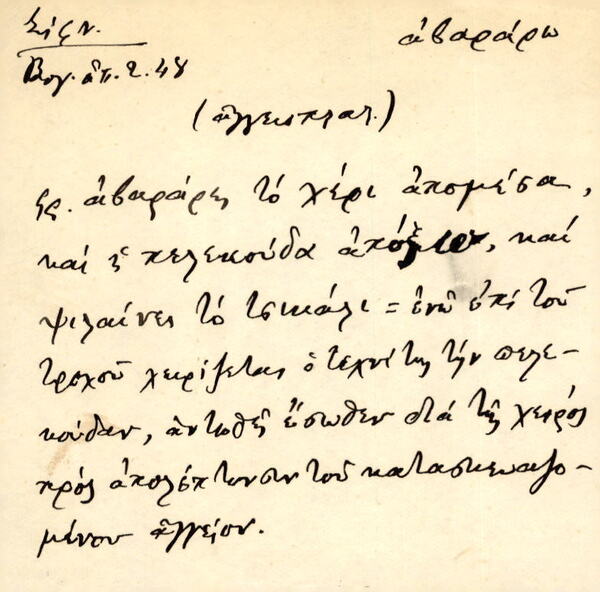 Σίφν.
ἀβαράρω
Βογ. ἀπ. 2. 48
(ἀγγειοπλαστ.)
φρ. ἀβαράρεις τὸ χέρι ἀπομέσα,
καὶ ἡ πελεκούδα ἀπόξω, καὶ
ψιλαίνεις τὸ τσικάλι = ἐνῶ ἐπὶ τοῦ
τροχοῦ χειρίζεται ὁ τεχνίτης τὴν πελε-
κούδαν, ἀντωθεῖ ἔσωθεν διὰ τῆς χειρὸς
πρὸς ἀπολέπτυνσιν τοῦ κατασκευαζο-
μένου ἀγγείου.